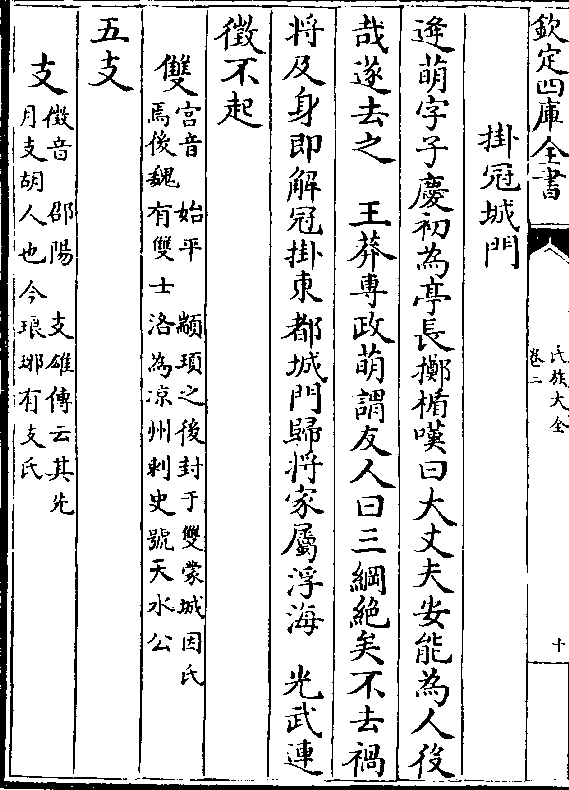 欽定四庫全書
氏族大全
卷二
十
掛冠城門
逄萌字子慶初為亭長擲楯嘆曰大丈夫安能為人役
哉遂去之　王莽專政萌謂友人曰三綱絶矣不去禍
將及身即解冠掛東都城門歸將家屬浮海　光武連
徵不起
雙
宫音　始平　顓頊之後封于雙蒙城因氏
焉後魏有雙士洛為凉州刺史號天水公
五支
支
徵音　邵陽　支雄傳云其先
月支胡人也今琅琊有支氏